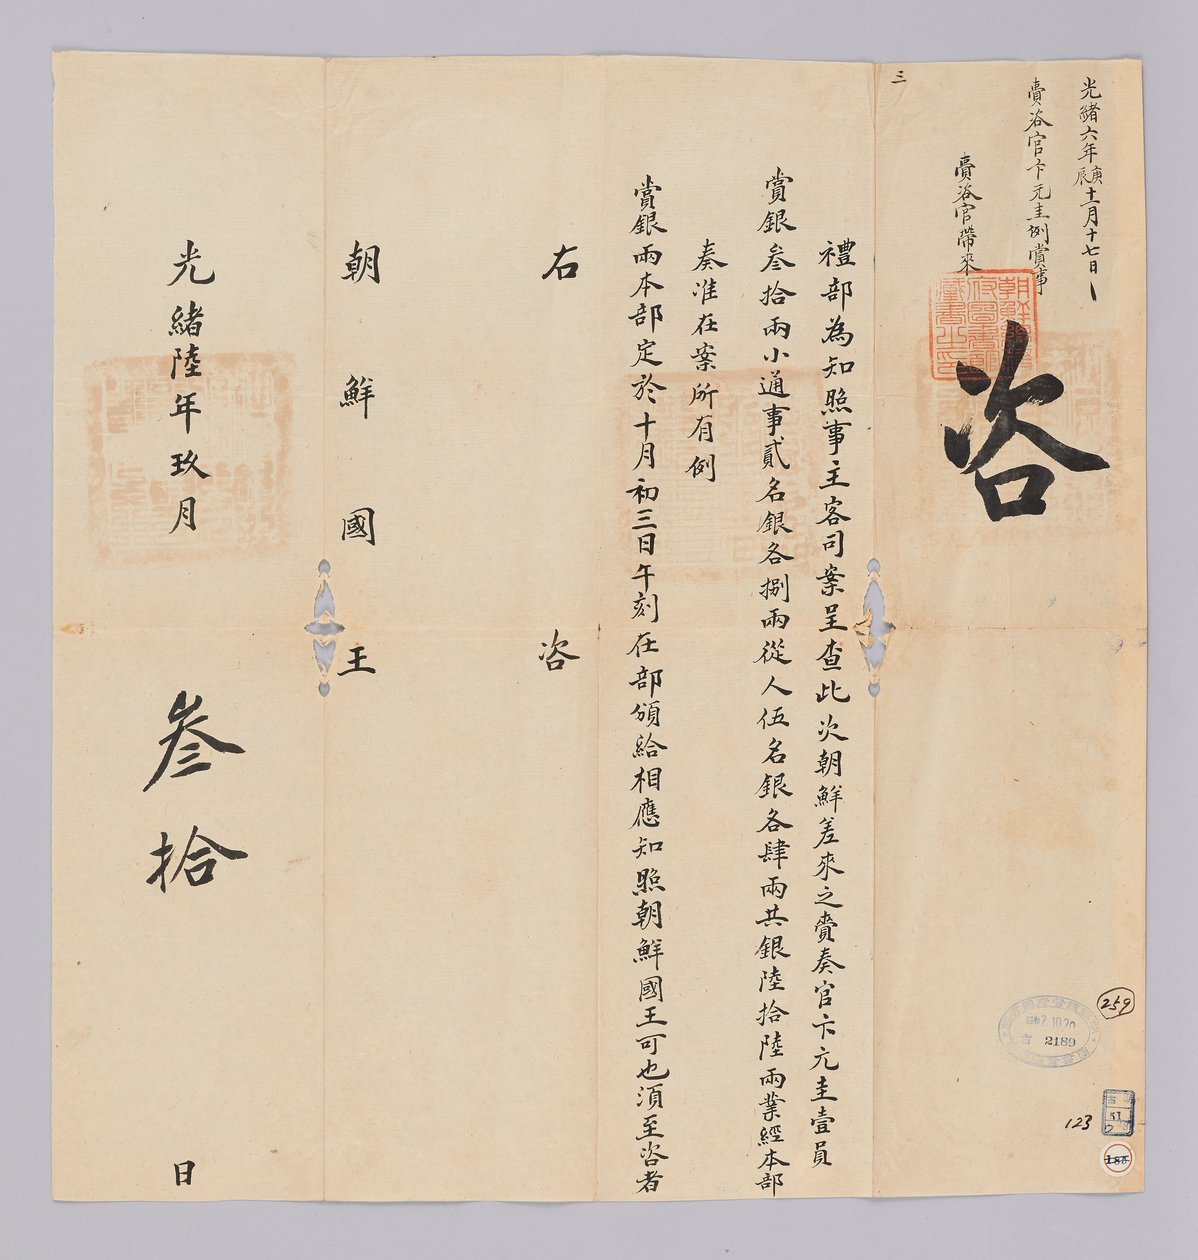 光緒六年庚辰十一月十七日
賫咨官卞元圭例賞事
賫咨官帶來
三
咨
禮部為知照事主客司案呈查此次朝鮮差來之賫奏官卞元圭壹員
賞銀叁拾兩小通事貳名銀各捌兩從人伍名銀各肆兩共銀陸拾陸兩業經本部
奏准在案所有例
賞銀兩本部定於十月初三日午刻在部頒給相應知照朝鮮國王可也須至咨者
右咨
朝鮮國王
光緒陸年玖月叁拾日
259
2.10.20
2189
123
51
188